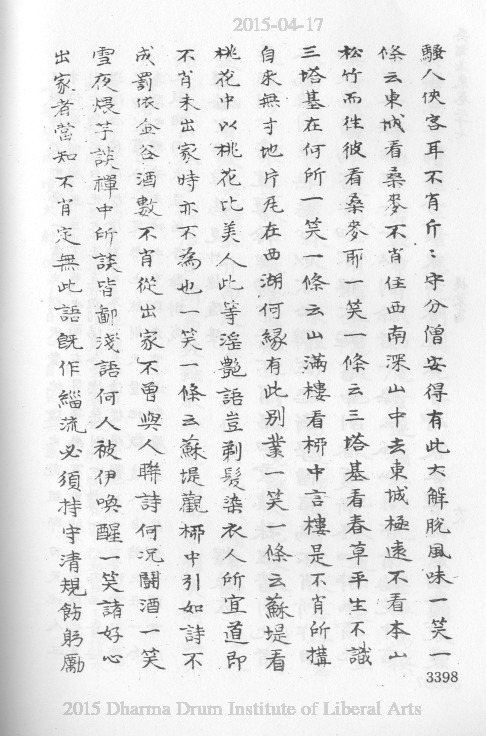 2015-04-17
騷人俠客耳不肖斤〻守分僧安得有此大解脫風味一笑一
條云東城看桑麥不肖住西南深山中去東城極遠不看本山
松竹而往彼看桑麥耶一笑一條云三塔基看春草平生不識
三塔基在何所一笑一條云山滿樓看桺中言樓是不肖所搆
自來無寸地片瓦在西湖何緣有此別業一笑一條云蘇堤看
桃花中以桃花比美人此等淫艷語豈剃髮染衣人所宜道即
不肖未出家時亦不為也一笑一條云蘇堤觀桺中引如詩不
成罰依金谷酒數不肖從出家不曾與人聯詩何況鬪酒一笑
雪夜煨芋談禪中所談皆鄙淺語何人被伊喚醒一笑諸好心
出家者當知不肖定無此語旣作緇流必須持守清規飭躬勵
3398
2015 Dharma Drum Institute of Liberal Arts